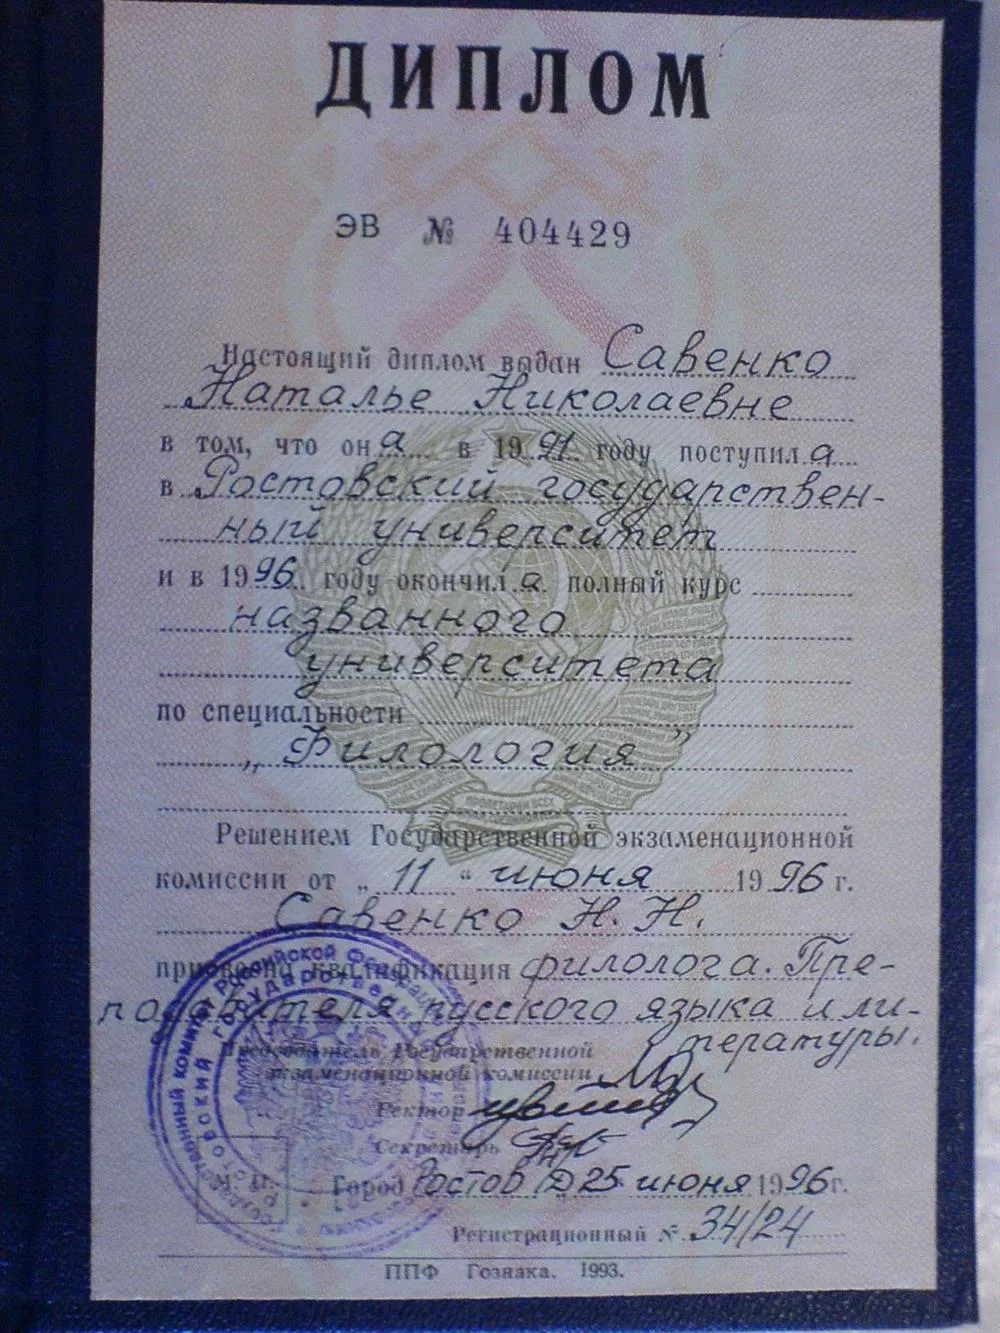 ДИПЛОМ
ЭВ № 404429
Настоящий диплом выдан Савенко
Наталье Николаевне
в том, что она в 1991 году поступила
в Ростовский государствен-
ный университет
и в 1996 году окончила полный курс
названного
университета
по специальности
„Филология”
Решением Государственной экзаменационной
комиссии от „11“ июня 1996 г.
Савенко Н. Н.
присвоена квалификация филолога. Пре-
подавателя русского языка и ли-
тературы.
Председатель Государственной
экзаменационной комиссии
Ректор
Секретарь
М. П.
Город Ростов Д 25 июня 1996 г.
Регистрационный № 34/24
ППФ Гознака. 1993.